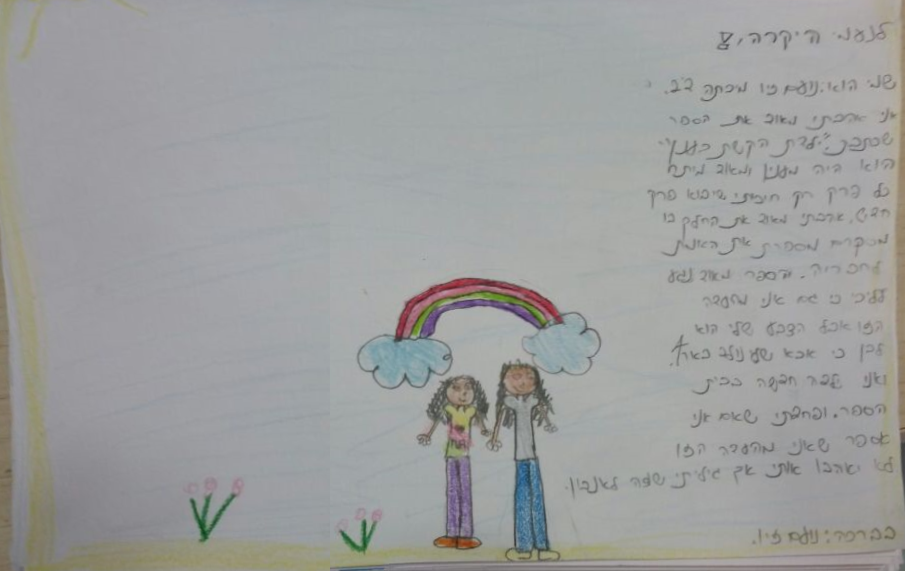 לנעמי היקרה,
שמי הוא: נועם זיו מכתה ד'2.
אני אהבתי מאוד את הספר
שכתבת: "ילדת הקשת בענן"
הוא היה מענין ומאוד מיתח
כל פרק רק חיכיתי שיבוא פרק
חדש, אהבתי מאוד את החלק בו
מספרת את האמת
לחבריה. הספר מאוד נגע
לליבי כי גם אני מהעדה
הזו אבל הצבע שלי הוא
לבן כי אבא שלי נולד בארץ.
ואני ילדה חדשה בבית
הספר. ופחדתי שאם אני
אספר שאני מהעדה הזו
לא יאהבו אותי אך גיליתי שזה לא נכון.
בברכה: נועם זיו.